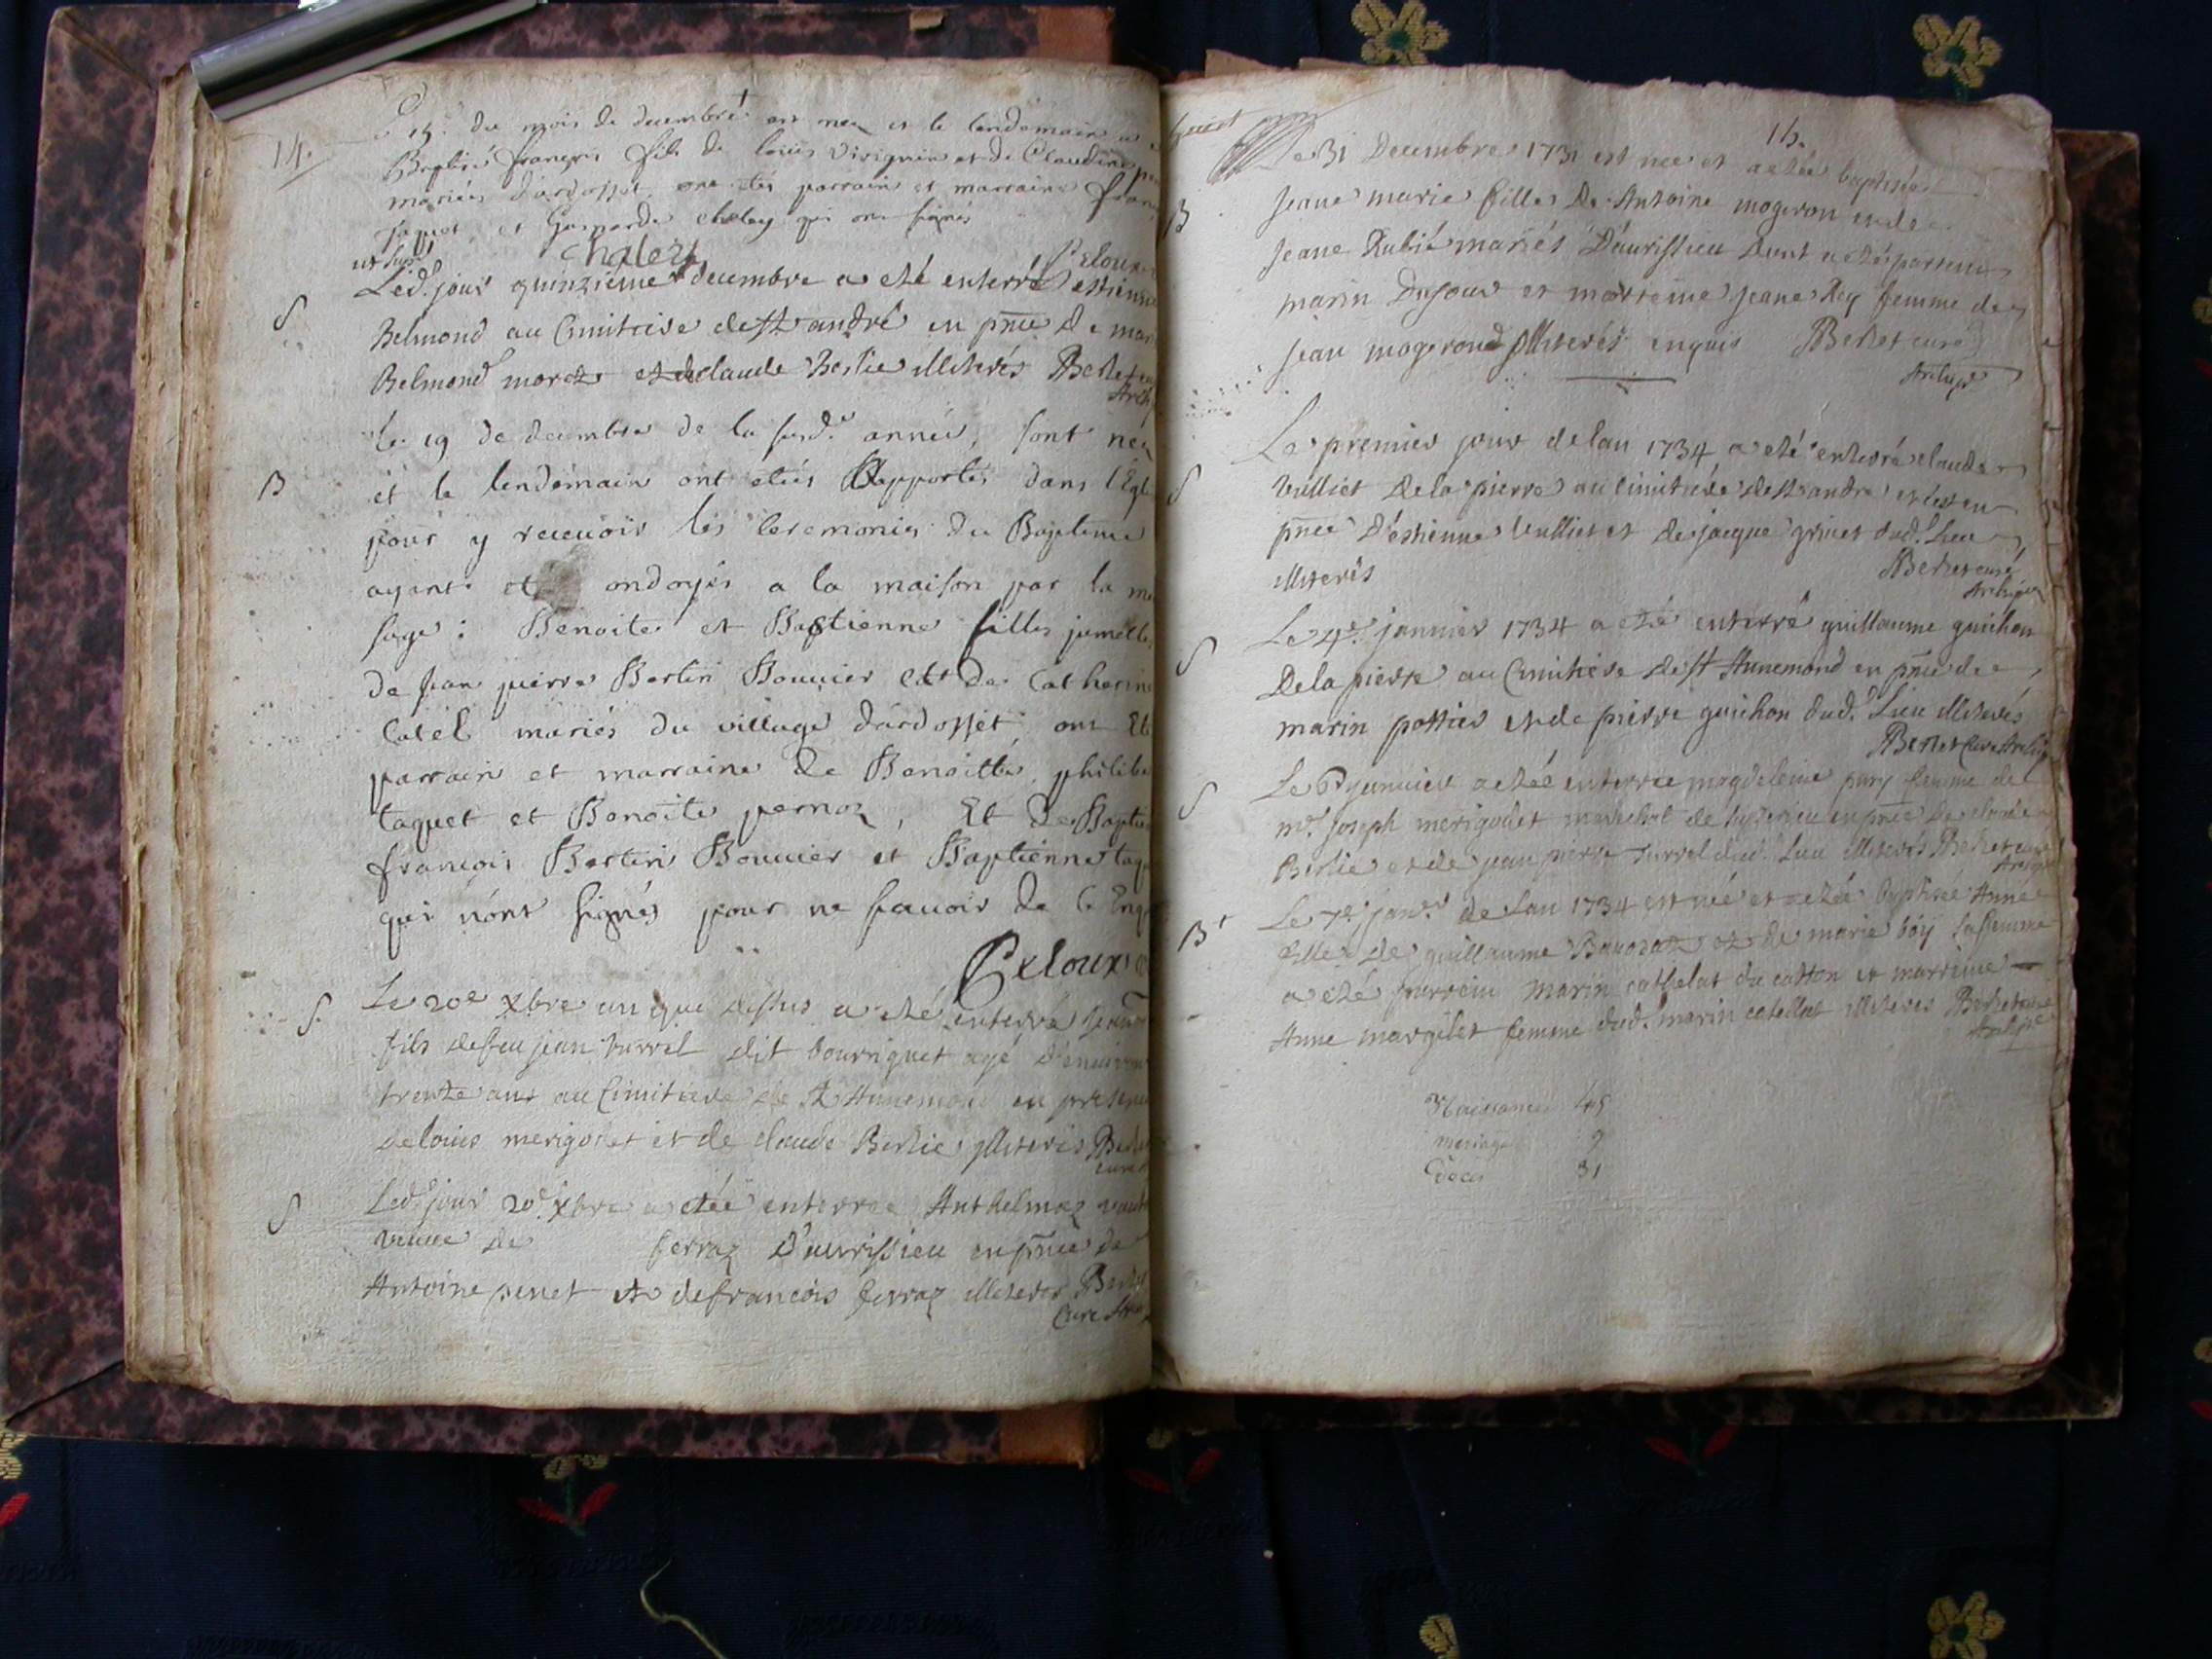 14.
15. du mois de decembre est nez et le lendemain a
Baptisé françois fils de loüis Virignin et de Claudine
mariés d'ardosset, ont étés parrain et marraine
jaquet et Gasparde chaley qui ont signés
ut supra chalezt Peloux
Led. jour quinzieme decembre a eté enterré estienne
S
Belmond au Cimitiere de st andré en pnce de
Belmond et de claude Berlie illiterés Berliet
Le 19 de decembre de la susd. année, sont nez
B
et le lendemain ont étés Apportés dans l'Egl
pour y recevoir les ceremonies du Bapteme
ayant eté ondoyés a la maison par la
sage : Benoite et Baptienne filles jumelle
de jean pierre Bertin Bouuier et de Catherine
Catel mariés du village dárdosset, ont Eté
parrain et marraine de Benoitte, philibe
taquet et Benoite pernoz, Et de Baptie
françois Bertin Bouuier et Baptienne taq
qui nónt signés pour ne sauoir de ce Enq
Peloux
S.
Le 20e Xbre an que dessus a eté enterré jean
fils de feu jean turrel dit bourriquet agé d'enuiron
trente ans au Cimitiere de st Annemond en presence
de louis merigodet et de claude Berlie illiterés
curé
S
Led. jour 20e Xbre a etée enterrée Anthelmaz
veuue de ferraz D'aurissieu en pnce de
Antoine penet et de francois ferraz illiterés
Curé
15.
Le 31 Decembre 1731 est née et a etée baptisée
B
jeane marie fille de Antoine mogeron et de
jeane Rubié mariés D'aurissieu dont a eté parrein
marin Dufour et marreine jeane Rey femme de
jean mogerond illiterés enquis Berliet curé
Archip.
Le premier jour de lan 1734 a eté enterré claude
S
Vulliet de la pierre au cimitiere de st andré en
pnce d'estienne Vulliet et de jacque grinet dud. Lieu
illiterés Berliet curé
Archip.
Le 4e. januier 1734 a eté enterré guillaume guichon
S
De la pierre au Cimitiere de st Annemond en pnce de
marin pottier et de pierre guichon dud. Lieu illiterés
Berliet Curé Archip.
Le 6 januier a etée enterrée magdeleine femme de
S
mr. joseph merigodet marechal de en pnce de claude
Berlie et de jean pierre turrel dud. Lieu illiterés Berliet curé
Archip.
Le 7e. janr. de Lan 1734 est née et a etée baptisée Anne
Bt
fille de guillaume Bauozat et de marie boy sa femme
a eté parrein marin cathelat du catton et marreine
Anne margilet femme dud. marin catellat illiterés Berliet curé
Archip.
Naissances 45
mariage 9
Décès 31